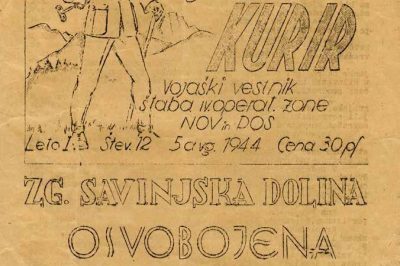 KURIR
Vojaški vestnik
štaba IV. operat. zone
NOV in DOS
Leto I. Štev. 12 5 avg. 1944 Cena 30 pf
ZG. SAVINJSKA DOLINA
OSVOBOJENA